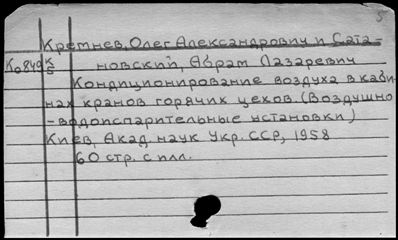 5
Кремнев, Олег Александрович и Сата-
Ко849 К/5 новский, Абрам Лазаревич
Кондиционирование воздуха в каби-
нах кранов горячих цехов. (Воздушно
-водоиспарительные установки)
Киев, Акад. наук Укр. ССР, 1958
60 стр. с илл.